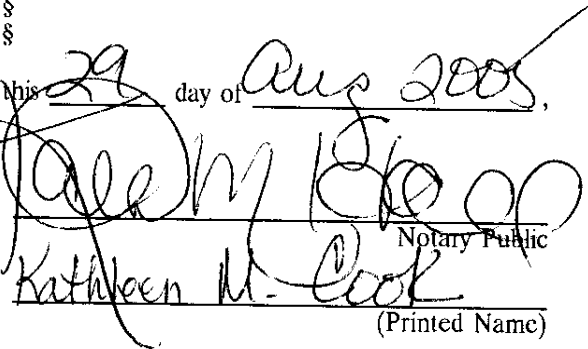 §
§
this 29 day of Aug 2005,
Notary Public
Kathleen M. Cook
(Printed Name)